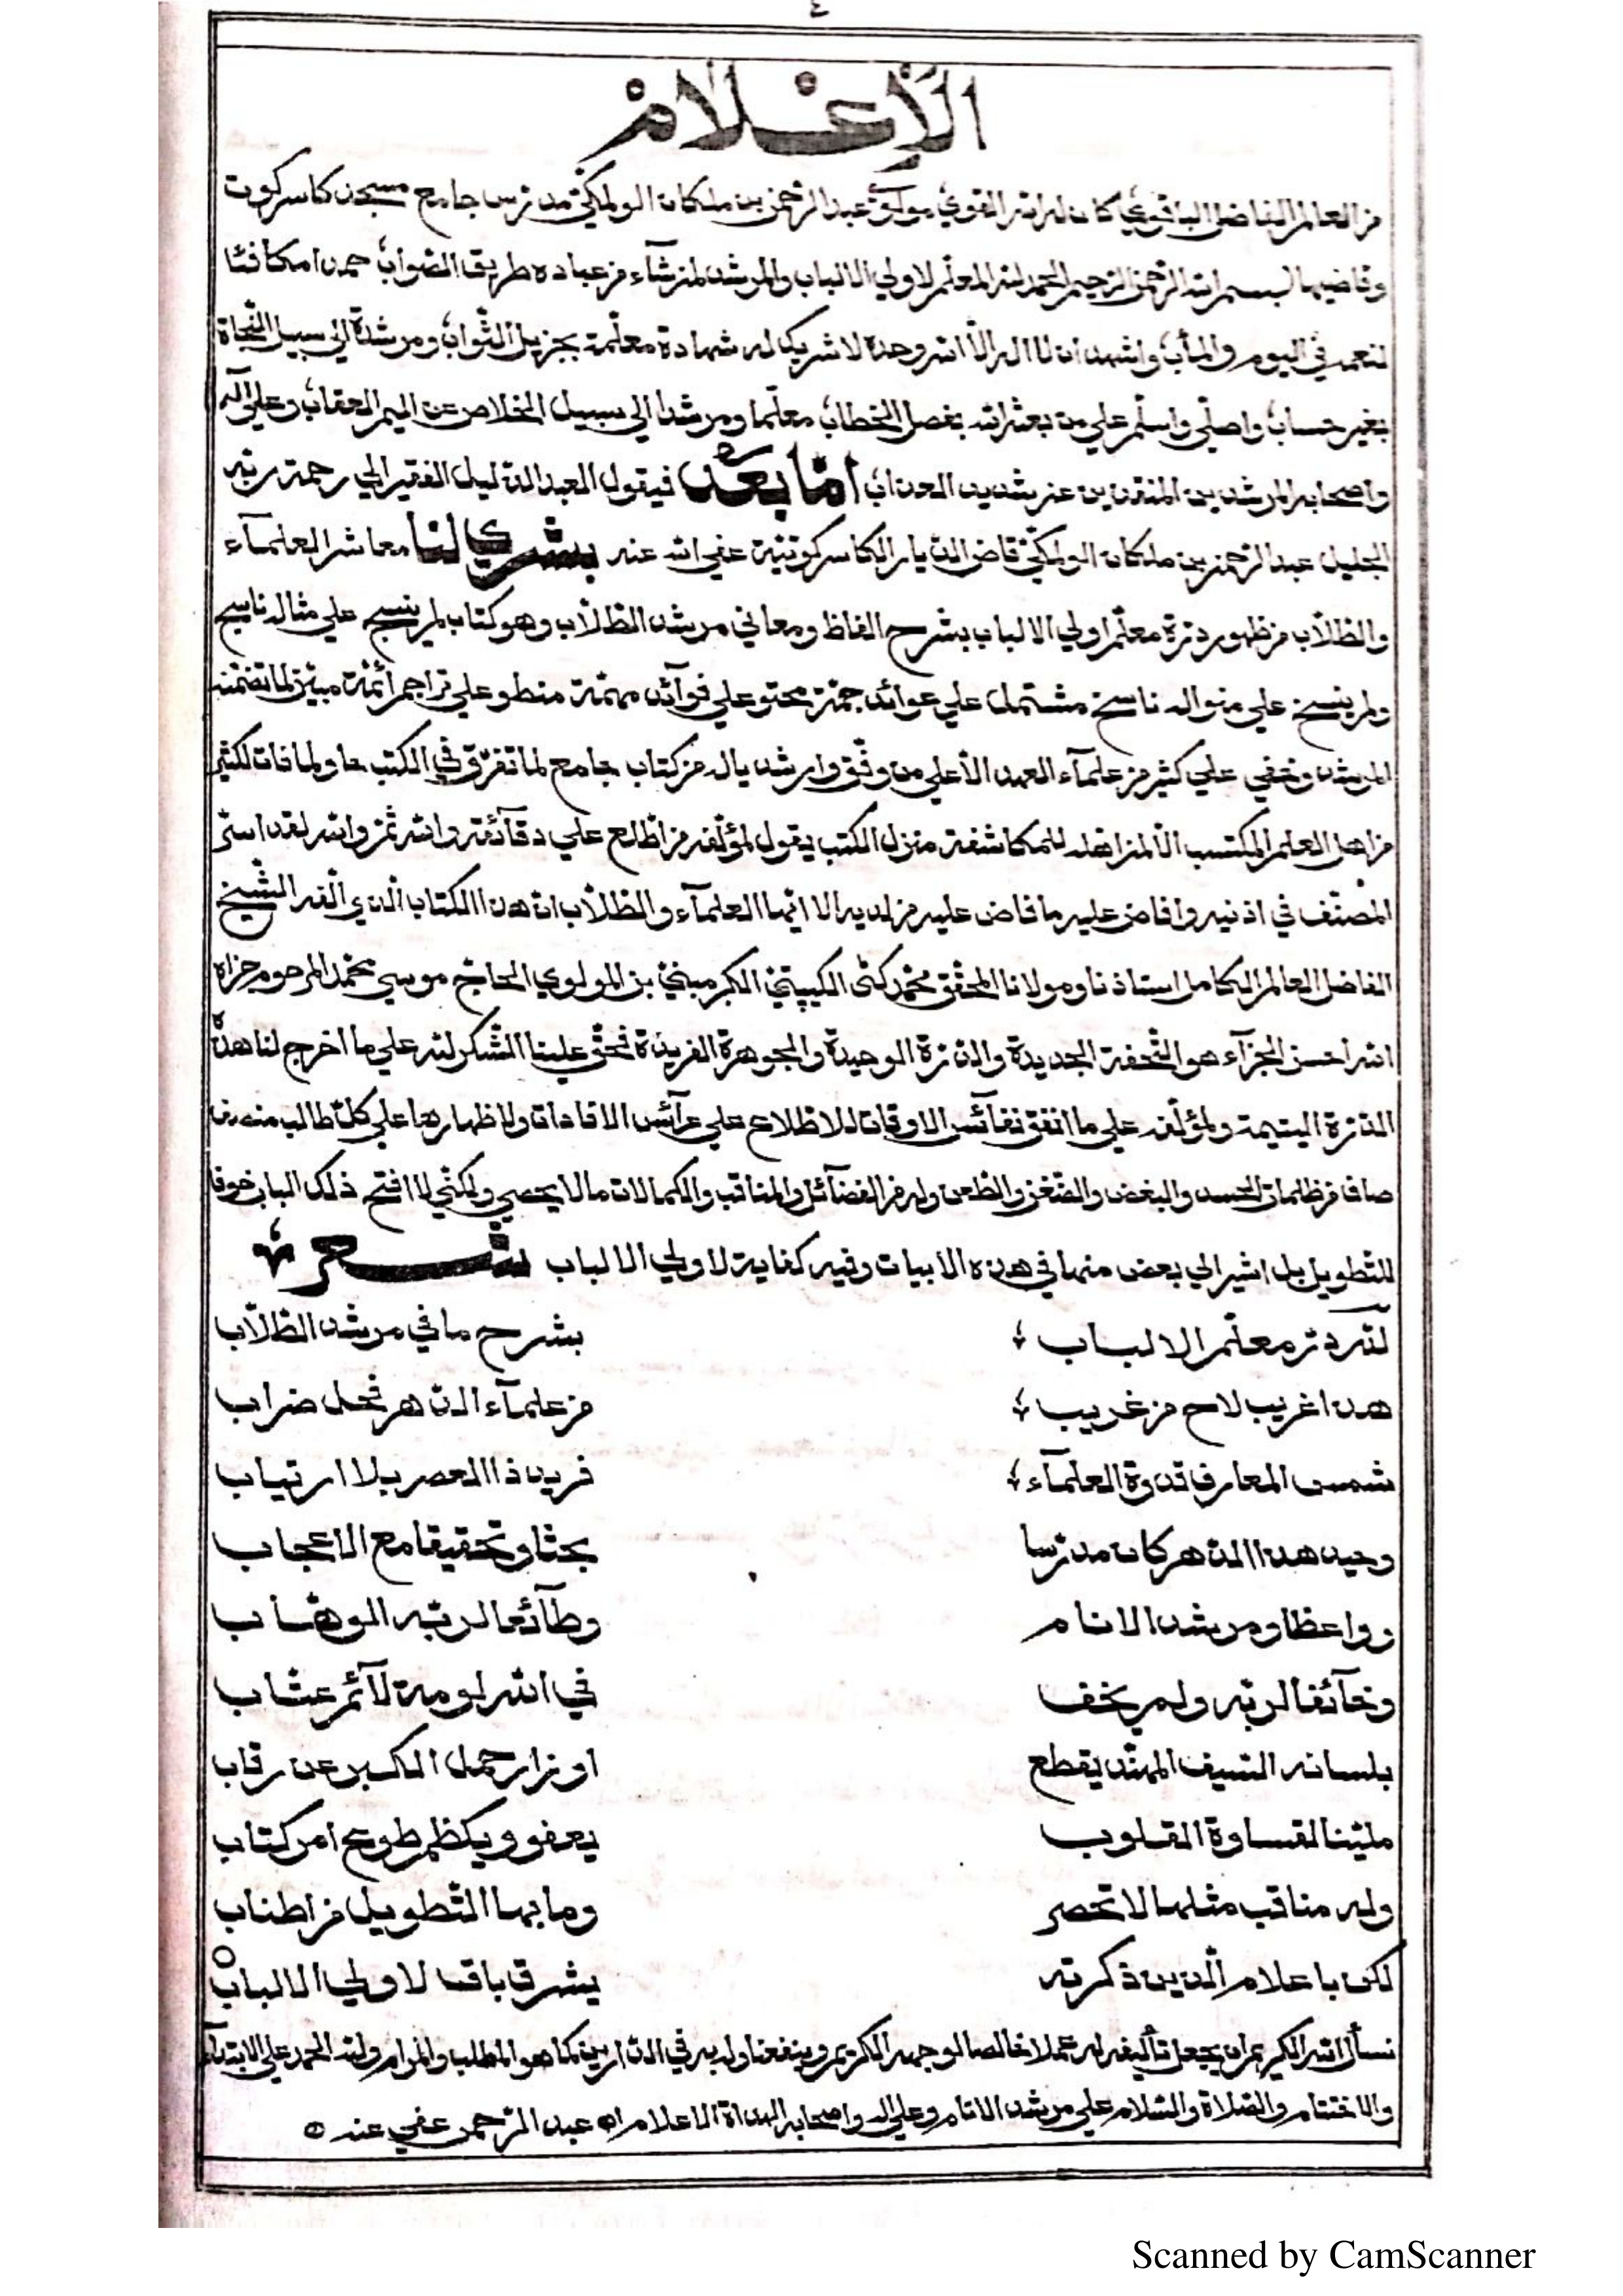 ٤
الإعلام
من العالم الفاضل الباقوي كان له الله القوي مولوي عبد الرحمن بن ملكان الولكي مدرس جامع مسجد كاسركوت
وقاضيها بسم الله الرحمن الرحيم الحمد لله المعلم لاولي الالباب والمرشد لمن شآء من عباده طريق الصواب حمدا مكافئا
لنعمه في اليوم والمآب واشهد ان لا اله الا الله وحده لا شريك له شهادة معلمة بجزيل الثواب ومرشدة الي سبيل النجاة
بغير حساب واصلي واسلم علي من بعثه الله بفصل الخطاب معلما ومرشدا الي سبيل الخلاص عن اليم العقاب وعلي آله
واصحابه المرشدين المنقذين عن شديد العذاب امّا بعد فيقول العبد الذليل الفقير الي رحمة ربه
الجليل عبد الرحمن بن ملكان الولكي قاضي الديار الكاسركوتية عفي الله عنه بشري لنا معاشر العلمآء
والطلاب من ظهور درة معلم اولي الالباب بشرح الفاظ ومعاني مرشد الطلاب وهو كتاب لم ينسج علي مثاله ناسج
ولم ينسخ علي منواله ناسخ مشتمل علي عوائد جمة محتو علي فوآئد مهمة منطو علي تراجم أئمة مبين لما تضمنه
المرشد وخفي علي كثير من علمآء العهد الأعلي من وفّق وارشد ياله من كتاب جامع لما تفرّق في الكتب حاو لما فات لكثير
من اهل العلم المكتسب الا لمن اهّله للمكاشفة منزل الكتب يقول لمؤلفه من اطلع علي دقآئقه والله ثم والله لقد اسرّ
المصنّف في اذنيه وافاض عليه ما فاض عليه من لديه الا ايها العلمآء والطلاب ان هذا الكتاب الذي الّفه الشيخ
الفاضل العالم الكامل استاذنا ومولانا المحقق محمد كتي الكيپتي الكرمبني بن المولوي الحاج موسي محمد المرحوم جزاه
الله احسن الجزآء هو التحفة الجديدة والدرة الوحيدة والجوهرة الفريدة فحق علينا الشكر لله علي ما اخرج لنا هذه
الدرة اليتيمة ولمؤلفه علي ما انفق نفآئس الاوقات للاطلاع علي عرآئس الافادات ولاظهارها علي كلّ طالب منصف
صاف من ظلمات الحسد والبغض والضغن والطعن وله من الفضآئل والمناقب والكمالات ما لا يحصي ولكني لا افتح ذلك الباب خوفا
للتطويل بل اشير الي بعض منها في هذه الابيات وفيه كفاية لاولي الالباب شعر
لله در معلّم الالباب بشرح ما في مرشد الطلاب
هذا غريب لاح من غريب من علمآء الدهر نحل ضراب
شمس المعارف قدوة العلمآء فريد ذا العصر بلا ارتياب
وحيد هذا الدهر كان مدرسا بحثا وتحقيقا مع الاعجاب
وواعظا ومرشد الانام وطآئعا لربه الوهّاب
وخآئفا لربه ولم يخف في الله لومة لآئم عتّاب
بلسانه السيف المهنّد يقطع اوزار حمل الكبر عن رقاب
مليّنا لقساوة القلوب يعفو ويكظم طوع امر كتاب
وله مناقب مثلها لا تحصر وما بها التطويل من اطناب
لكن باعلام الّذين ذكرته يشرق باقا لاولي الالباب
نسأل الله الكريم ان يجعل تأليفه له عملا خالصا لوجهه الكريم وينفعنا وله به في الدارين كما هو المطلب والمرام ولله الحمد علي الابتدآء
والاختتام والصلاة والسلام علي مرشد الانام وعلي اله واصحابه الهداة الاعلام اه عبد الرحمن عفي عنه
Scanned by CamScanner